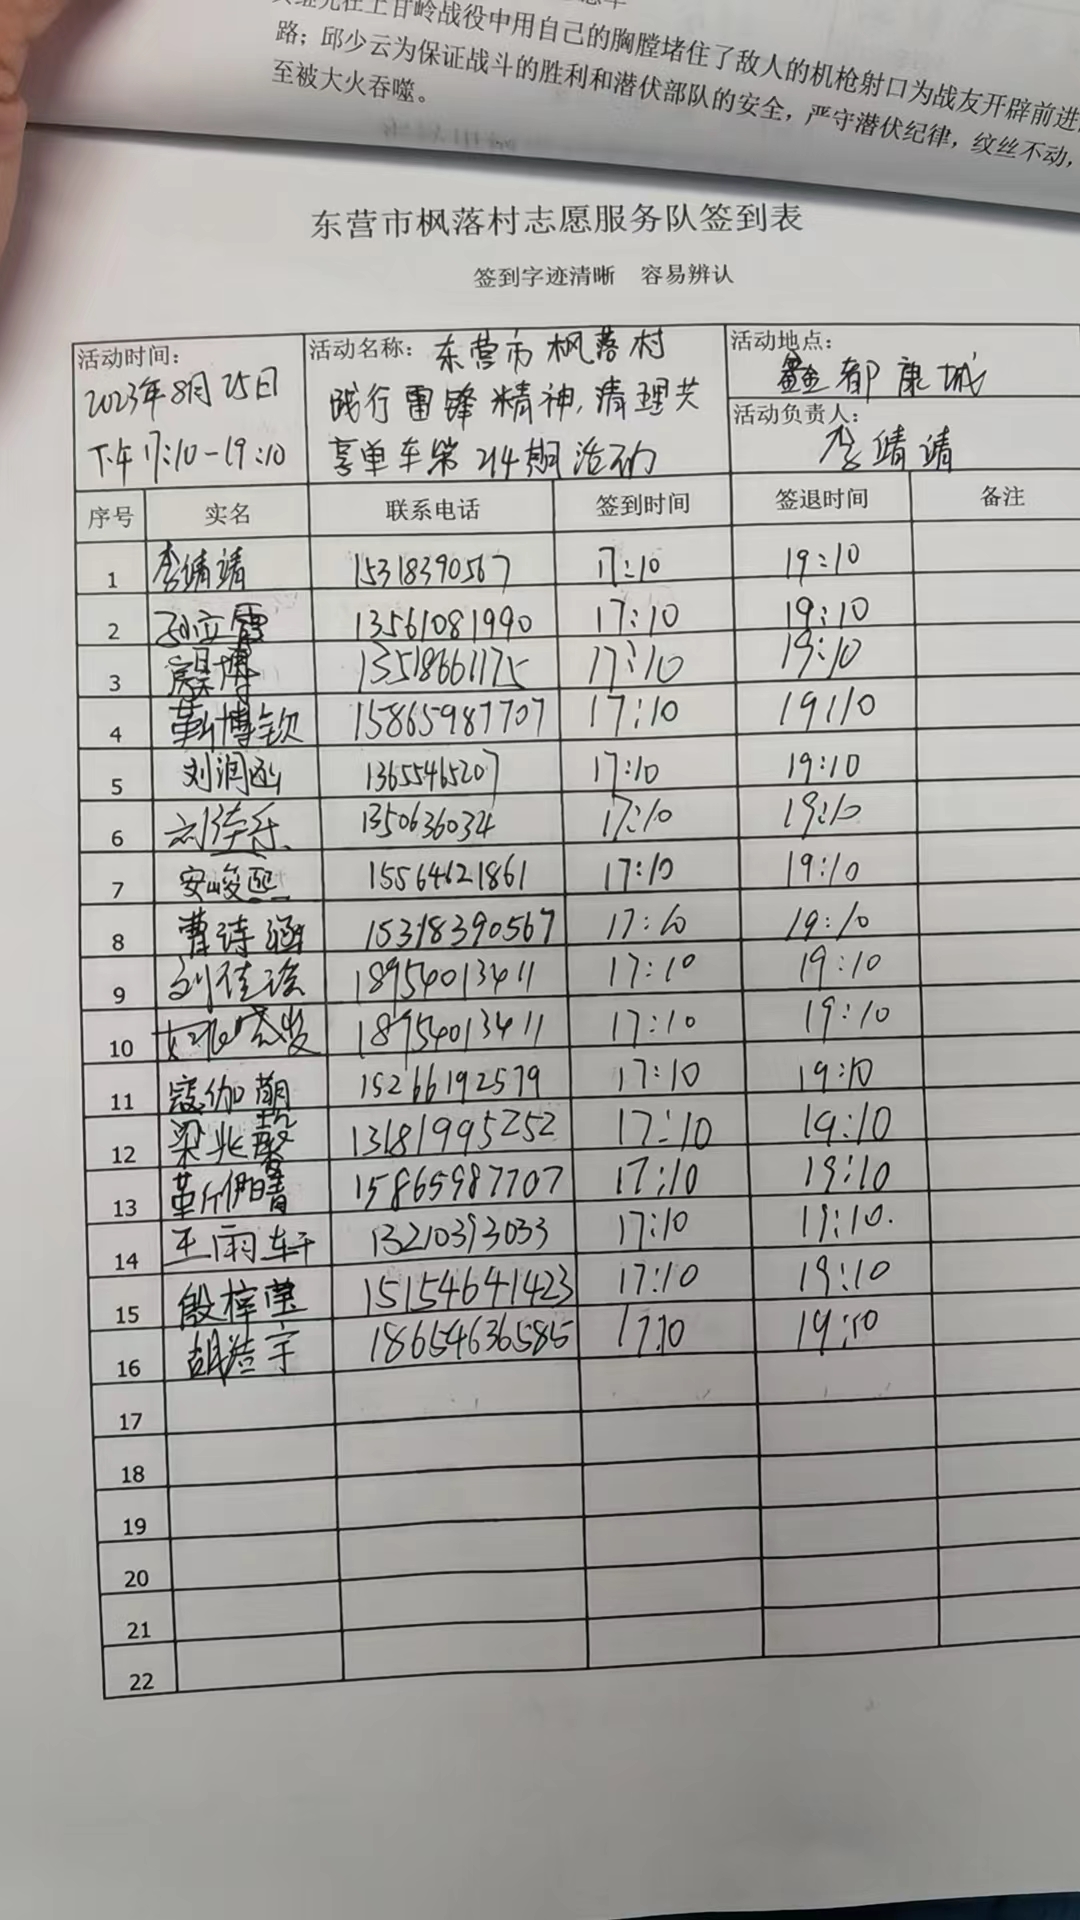 路；邱少云为保证战斗的胜利和潜伏部队的安全，严守潜伏纪律，纹丝不动，
在上甘岭战役中用自己的胸膛堵住了敌人的机枪射口为战友开辟前进
至被大火吞噬。
东营市枫落村志愿服务队签到表
签到字迹清晰 容易辨认
活动时间：
2023年8月25日
下午17:10-19:10
活动名称：东营市枫落村
践行雷锋精神,清理共
享单车第214期活动
活动地点：
鑫都康城
活动负责人：
李靖靖
序号 实名 联系电话 签到时间 签退时间 备注
1 李靖靖 15318390567 17:10 19:10
2 孙立霞 13561081990 17:10 19:10
3 13518661175 17:10 19:10
4 靳博钦 15865987707 17:10 19:10
5 刘润函 13655465207 17:10 19:10
6 刘 1350636034 17:10 19:10
7 安峻熙 15564621861 17:10 19:10
8 曹诗涵 15318390567 17:10 19:10
9 刘佳 18954013411 17:10 19:10
10 18954013411 17:10 19:10
11 寇伽萌 15266192579 17:10 19:10
12 梁兆馨 13181995252 17:10 19:10
13 15865987707 17:10 19:10
14 王雨轩 13210393033 17:10 19:10.
15 殷梓莹 15154641423 17:10 19:10
16 胡浩宇 18654636585 17:10 19:10
17
18
19
20
21
22